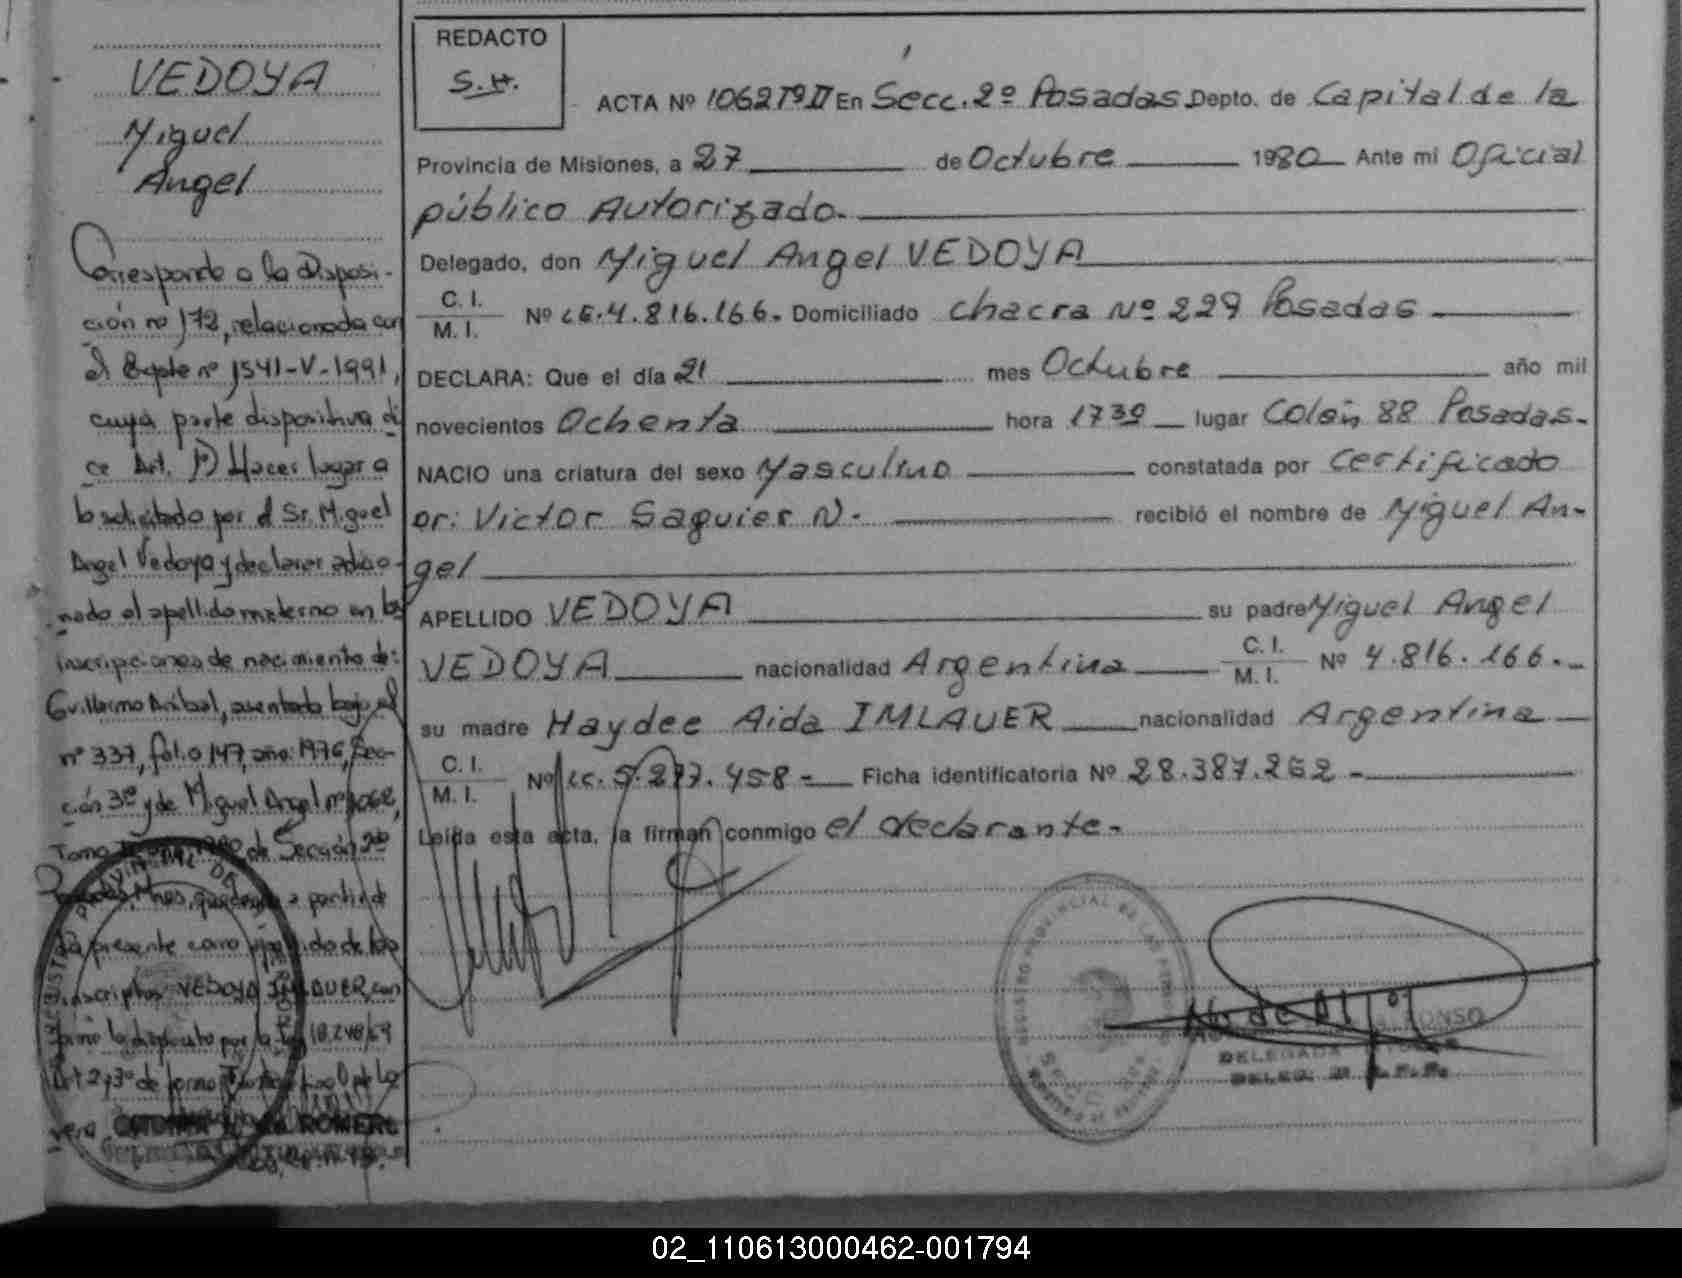 VEDOYA
Miguel
Angel
Corresponde a la Disposi-
ción nº 172, relacionada con
el Expte nº 1541-V-1991,
cuya parte dispositiva di
ce Art. 1º) Hacer lugar a
lo solicitado por el Sr. Miguel
Angel Vedoya y declarar adicio-
nado el apellido materno en las
inscripciones de nacimiento de:
Guillermo Anibal, asentada bajo el
nº 337, folio 147, año: 1976, Sec-
ción 3º y de Miguel Angel nº 1062,
Tomo de Sección 2º
a partir de
la presente como apellido de los
inscriptos VEDOYA IMLAUER, con
forme lo dispuesto por la Ley 18.248/69
Art 2 y 3º de forma
ROMERO
REDACTO
S.H.
ACTA Nº 1062 Tº II En Secc. 2º Posadas Depto. de Capital de la
Provincia de Misiones, a 27 de Octubre 1980 Ante mi Oficial
público Autorizado.
Delegado, don Miguel Angel VEDOYA
C. I.
M. I. Nº LE. 4.816.166. Domiciliado Chacra Nº 229 Posadas
DECLARA: Que el día 21 mes Octubre año mil
novecientos Ochenta hora 17 30 lugar Colón 88 Posadas.
NACIO una criatura del sexo Masculino constatada por Certificado
Dr: Victor Saguier N. recibió el nombre de Miguel An-
gel
APELLIDO VEDOYA su padre Miguel Angel
VEDOYA nacionalidad Argentina C. I.
M. I. Nº 4.816.166.
su madre Haydee Aida IMLAUER nacionalidad Argentina
C. I.
M. I. Nº LC. 5.277.458 - Ficha identificatoria Nº 28.387.262 -
Leída esta acta, la firman conmigo el declarante.
REGISTRO PROVINCIAL DE LAS PERSONAS
DELEGADA
02_110613000462-001794